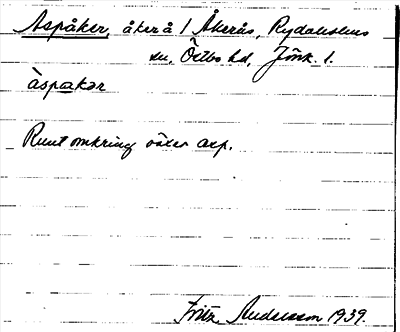 Aspåker, åker å 1 Åkerås, Rydaholms
sn. Östbo hd, Jönk. l.
àspakər
Runt omkring växer asp.
Fritz Andersson 1939.